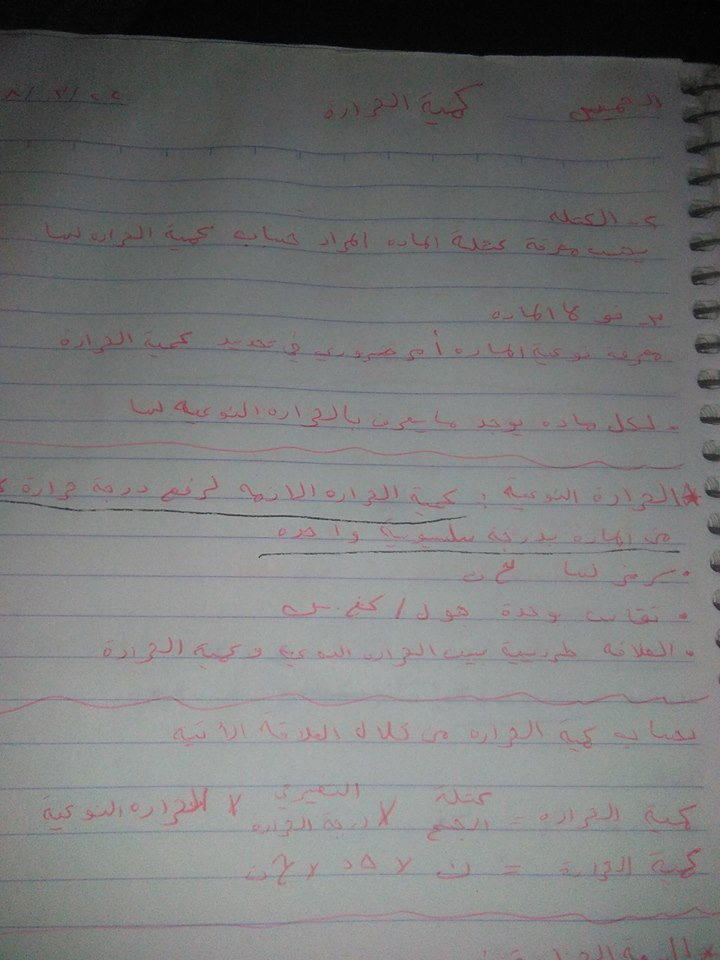 الخميس كمية الحراره
٢- الكتله
يجب معرفة كتلة الماده المراد حساب كمية الحراره لها
٣- نوع الماده
معرفة نوعية الماده أمر ضروري في تحديد كمية الحرارة
• لكل ماده يوجد ما يعرف بالحراره النوعيه لها
* الحرارة النوعية : كمية الحراره الازمه لرفع درجة حرارة
من الماده بدرجة سلسيوسية واحده
• يرمز لها حن
• تقاس بوحدة جول / كغ . س
• العلاقه طردسية بين الحراره النوعية وكمية الحرارة
حساب كمية الحراره من خلال العلاقة الأتيه
كمية الحراره = كتلة الجسم X التغير في درجة الحراره X الحراره النوعية
كمية الحرارة = ك X ∆د X حن